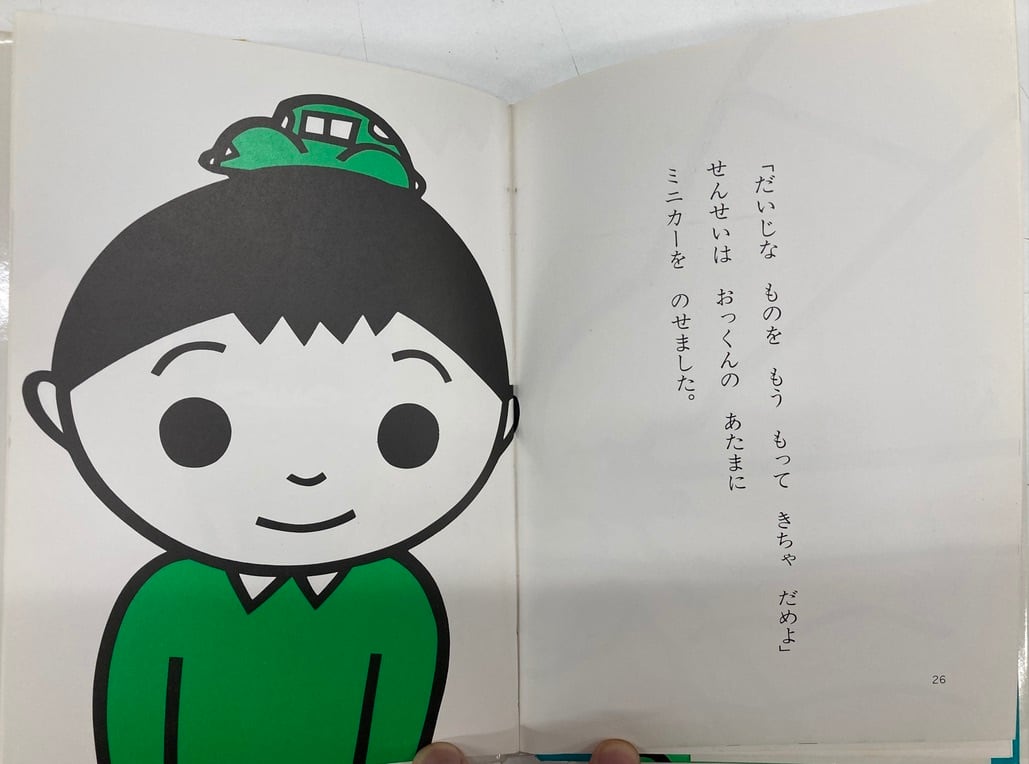 「だいじな　ものを　もう　もって　きちゃ　だめよ」
せんせいは　おっくんの　あたまに
ミニカーを　のせました。
26